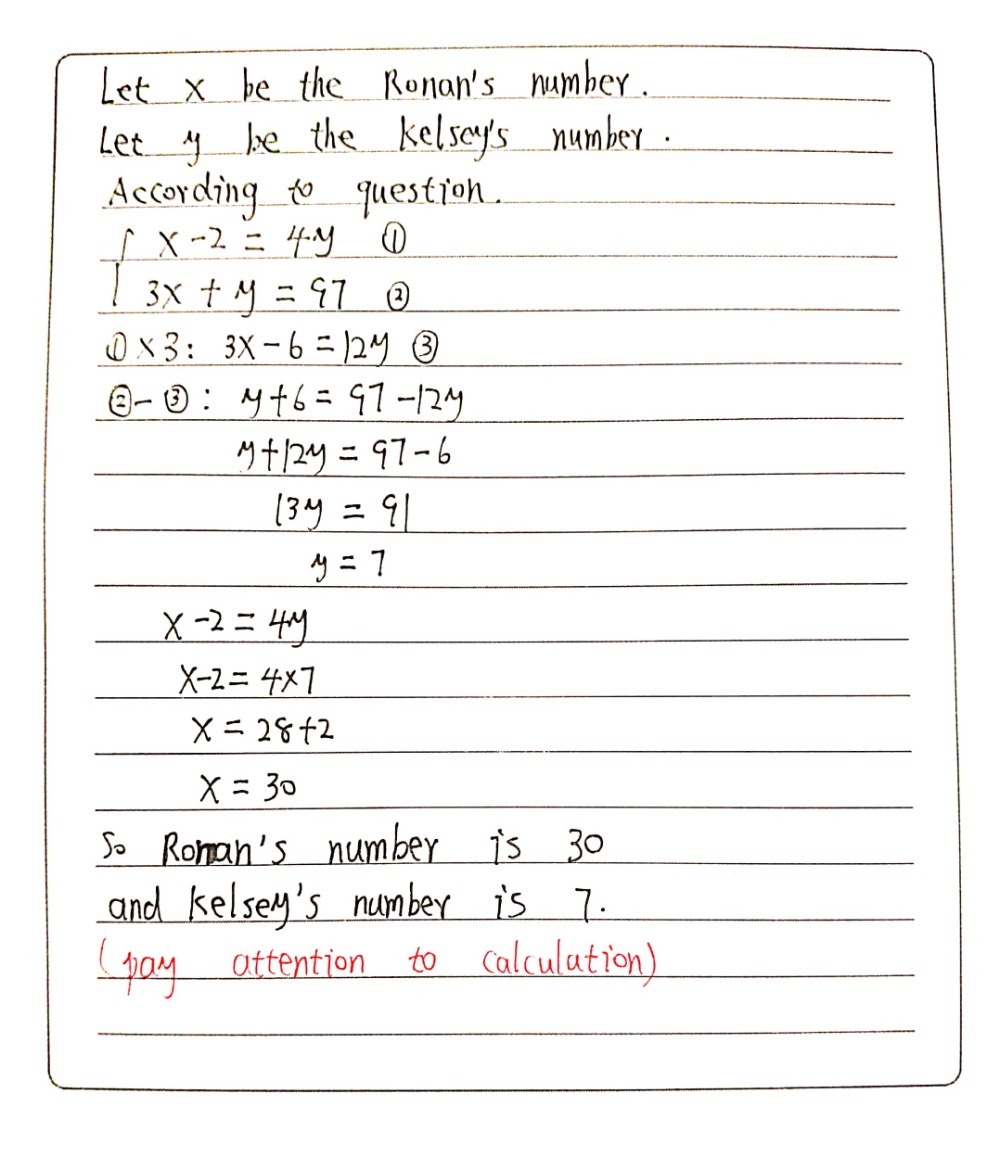 Let x be the Ronan's number.
Let y be the Kelsey's number.
According to question.
{ x-2 = 4y ①
3x + y = 97 ②
①×3: 3x-6=12y ③
②-③: y+6 = 97-12y
y+12y = 97-6
13y = 91
y = 7
x-2 = 4y
x-2 = 4×7
x = 28+2
x = 30
So Ronan's number is 30
and Kelsey's number is 7.
(pay attention to calculation)